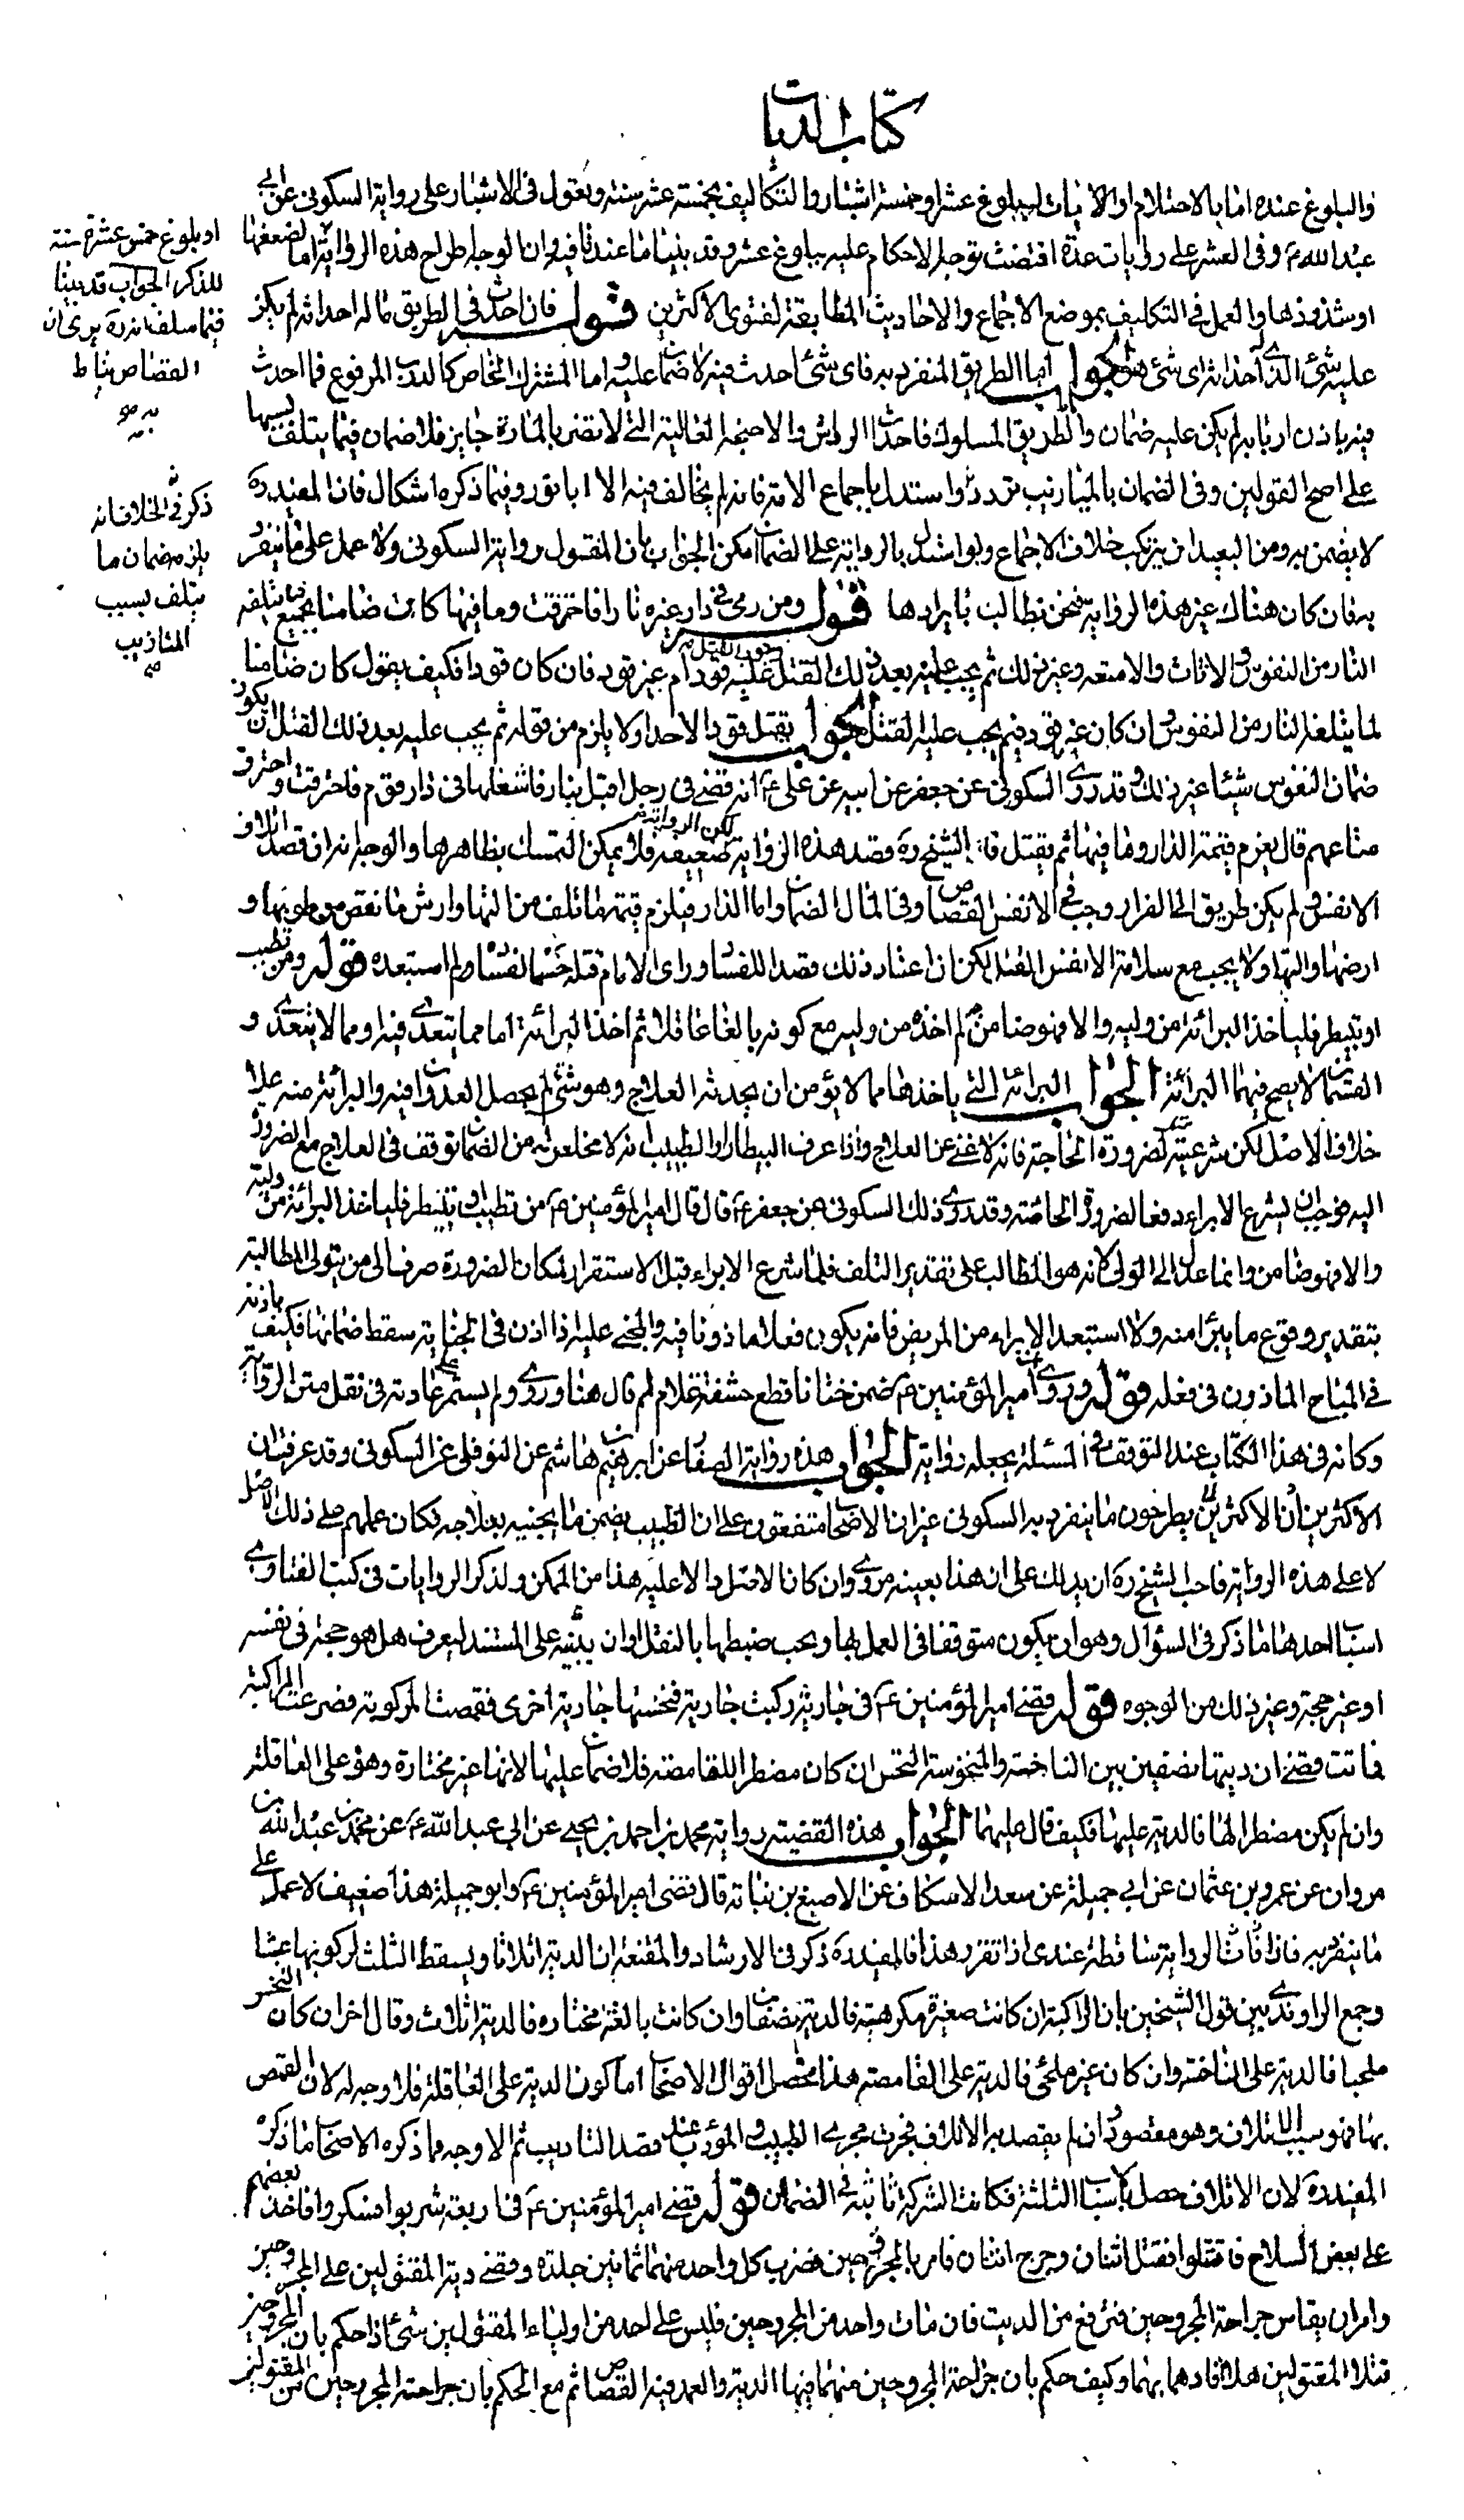 كتاب الديات
والبلوغ عنده اما بالاحتلام او الانبات او ببلوغ عشر او خمسة اشبار والتكاليف بخمسة عشر سنة ويعول في الاشبار على رواية السكوني عن ابي
عبد الله ع وفي العشر على روايات عدة اقتضت توجه الاحكام عليه ببلوغ عشر وقد بينا ما عندنا فيه وان الوجه طراح هذه الرواية اما لضعفها
او شذوذها والعمل في التكليف بموضع الاجماع والاحاديث المطابقة لفتوى الاكثرين قوله فان احدث في الطريق ما له احداثه لم يكن
عليه شئ الذي له احداثه اى شئ هو الجواب اما الطريق المنفرد به فاى شئ احدث فيه لا ضمان عليه واما المشترك الخاص كالدرب المرفوع فما احدث
فيه باذن اربابه لم يكن عليه ضمان والطريق المسلوك فاحداث الرواشن والاجنحة العالية التي لا تضر بالمارة جايز فلا ضمان فيما يتلف بسببها
على اصح القولين وفي الضمان بالميازيب تردد واستدل باجماع الامة فانه لم يخالف فيه الا اباثور وفيما ذكره اشكال فان المفيد ره
لا يضمن به ومن البعيد ان يرتكب خلاف الاجماع ولو استدل بالرواية على الضمان امكن الجواب بان المقول رواية السكوني ولا عمل على ما ينفرد
به فان كان هناك غير هذه الرواية فنحن نطالب بايرادها قوله ومن رمى في دار غيره نارا فاحترقت وما فيها كان ضامنا لجميع ما تتلفه
النار من النفوس والاثاث والامتعة وغير ذلك ثم يجب عليه بعد ذلك القتل عليه قود ام غير قود فان كان قودا فكيف يقول كان ضامنا
لما يتلفه النار من النفوس وان كان غير قود فبم يجب عليه القتل الجواب يقتل قودا لاحدا ولا يلزم من قوله ثم يجب عليه بعد ذلك القتل ان يكون
ضمان النفوس شيئا غير ذلك وقد روى السكوني عن جعفر عن ابيه عن علي ع انه قضى في رجل اقبل بنار فاشعلها في دار قوم فاحترقت واحترق
متاعهم قال يغرم قيمة الدار وما فيها ثم يقتل فالشيخ ره قصد هذه الرواية لكن الرواية ضعيفة فلا يمكن التمسك بظاهرها والوجه انه ان قصد اتلاف
الانفس ولم يكن طريق الى الفرار وجب في الانفس القصاص وفي المال الضمان واما الدار فيلزم قيمة ما تلف من آلتها وارش ما نقص من طوبها و
ارضها وآلتها ولا يجب مع سلامة الانفس القتل لكن ان اعتاد ذلك قصدا للفساد وراى الامام قتله حسما لفساده لم استبعده قوله ومن تطبب
او تبيطر فلياخذ البرائة من وليه والا فهو ضامن لم اخذه من وليه مع كونه بالغا عاقلا ثم اخذ البرائة اما مما يتعدى فيه او مما لا يتعدى و
القسمان لا يصح فيهما البرائة الجواب البرائة التي ياخذها مما لا يؤمن ان يحدثه العلاج وهو شئ لم يحصل العدوان فيه والبرائة منه على
خلاف الاصل لكن شرعيته لضرورة الحاجة فانه لا غنى عن العلاج واذا عرف البيطار او الطبيب انه لا مخلص له من الضمان توقف في العلاج مع الضرورة
اليه فوجب ان يشرع الابراء دفعا لضرورة الحاجة وقد روى ذلك السكوني عن جعفر ع قال قال امير المؤمنين ع من تطبب او تبيطر فلياخذ البرائة من وليه
والا فهو ضامن وانما عدل الى الولي لانه هو المطالب على تقدير التلف فلما شرع الابراء قبل الاستقرار لمكان الضرورة صرف الى من يتولى المطالبة
بتقدير وقوع ما يبرا منه ولا استبعد الابراء من المريض فانه يكون فعلا ماذونا فيه والمجني عليه اذا اذن في الجناية سقط ضمانها فكيف باذنه
في المباح الماذون في فعله قوله وروى ان امير المؤمنين ع ضمن ختانا قطع حشفة غلام لم قال هنا وروى ولم يستمر على عادته في نقل متن الرواية
وكانه في هذا الكتاب عند التوقف في المسئلة يجعله رواية الجواب هذه رواية الصفار عن ابرهيم بن هاشم عن النوفلي عن السكوني وقد عرفت ان
الاكثرين ان الاكثرين يطرحون ما ينفرد به السكوني غير ان الاصحاب متفقون على ان الطبيب يضمن ما يجنيه بعلاجه فكان عملهم على ذلك الاصل
لا على هذه الرواية فاحب الشيخ ره ان يدلك على ان هذا بعينه مروى وان كان الاصل دالا عليه هذا من الممكن ولذكر الروايات في كتب الفتاوى
اسباب احدها ما ذكر في السؤال وهو ان يكون متوقفا في العمل بها ويجب ضبطها بالنقل او ان ينبه على المستند ليعرف هل هو حجة في نفسه
او غير حجة وغير ذلك من الوجوه قوله قضى امير المؤمنين ع في جارية ركبت جارية فنخستها جارية اخرى فقمصت المركوبة فصرعت الراكبة
فماتت فقضى ان ديتها نصفين بين الناخسة والمنخوسة النخس ان كان مضطرا للقامصة فلا ضمان عليها لانها غير مختارة وهو على العاقلة
وان لم يكن مضطرا لها فالدية عليها فكيف قال عليهما الجواب هذه القضية رواية محمد بن احمد بن يحيى عن ابي عبد الله ع عن محمد بن عبد الله بن
مروان عن عمرو بن عثمان عن ابي جميلة عن سعد الاسكاف عن الاصبغ بن نباتة قال قضى امير المؤمنين ع وابو جميلة هذا ضعيف لا عمل على
ما ينفرد به فاذا الرواية ساقطة عندى اذا تقرر هذا فالمفيد ره ذكر في الارشاد والمقنعة ان الدية اثلاثا ويسقط الثلث لركوبها عبثا
وجمع الراوندى بين قول الشيخين بان الراكبة ان كانت صغيرة مكرهة فالدية نصفان وان كانت بالغة مختارة فالدية اثلاث وقال اخر ان كان النخس
ملجيا فالدية على الناخسة وان كان غير ملجئ فالدية على القامصة هذا محصل اقوال الاصحاب اما كون الدية على العاقلة فلا وجه له لان القمص
بها فهو سبب الاتلاف وهو مقصود وان لم يقصد به الاتلاف فجرت مجرى الطبيب والمؤدب عند قصد التاديب ثم الاوجه مما ذكره الاصحاب ما ذكره
المفيد ره لان الاتلاف حصل بالاسباب الثلثة فكانت الشركة ثابتة في الضمان قوله قضى امير المؤمنين ع في اربعة شربوا فسكروا فاخذ بعضهم
على بعض السلاح فاقتتلوا فقتل اثنان وجرح اثنان فامر بالمجروحين فضرب كل واحد منهما ثمانين جلدة وقضى دية المقتولين على المجروحين
وامر ان يقاس جراحة المجروحين فترفع من الدية فان مات واحد من المجروحين فليس على احد من اولياء المقتولين شئ اذا حكم بان المجروحين
قتلا المقتولين هلا اقادهما بهما وكيف حكم بان جراحة المجروحين منهما فيها الدية والعمد فيه القصاص ثم مع الحكم بان جراحة المجروحين من المقتولين
او بلوغ خمس عشرة سنة
للذكر الجواب قد بينا
فيما سلف انه ره يرى ان
القصاص يناط
به
ذكر في الخلاف انه
يلزمه ضمان ما
يتلف بسبب
الميازيب
صح